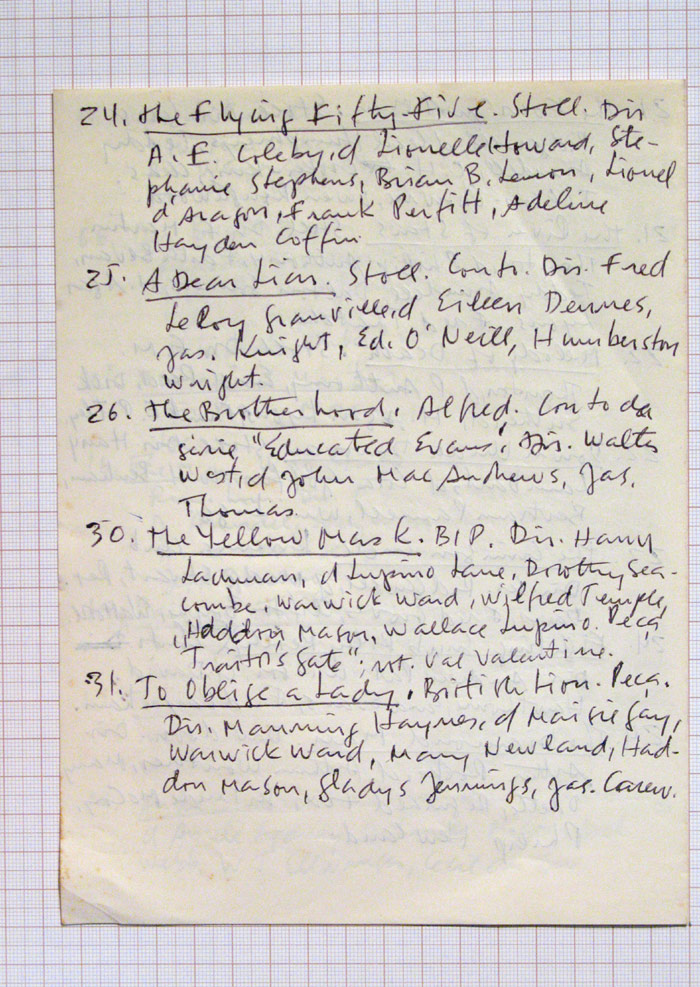 24. The Flying Fifty-Five. Stoll. Dir
A. E. Coleby, d Lionelle Howard, Ste-
phanie Stephens, Brian B. Lemon, Lionel
d'Aragon, Frank Perfitt, Adeline
Hayden Coffin.
25. A Dear Liar. Stoll. Conto. Dir. Fred
LeRoy Granville, d Eileen Dennes,
Jas. Knight, Ed. O'Neill, Humberston
Wright.
26. The Brotherhood. Alfred. Conto da
série "Educated Evans". Dir. Walter
West, d John MacAndrews, Jas.
Thomas.
30. The Yellow Mask. BIP. Dir. Harry
Lachman, d Lupino Lane, Dorothy Sea-
combe, Warwick Ward, Wilfred Temple,
Haddon Mason, Wallace Lupino. Peça
"Traitor's Gate"; Val Valentine.
31. To Oblige a Lady. British Lion. Peça.
Dir. Manning Haynes, d Maisie Gay,
Warwick Ward, Mary Newland, Had-
don Mason, Gladys Jennings, Jas. Carew.